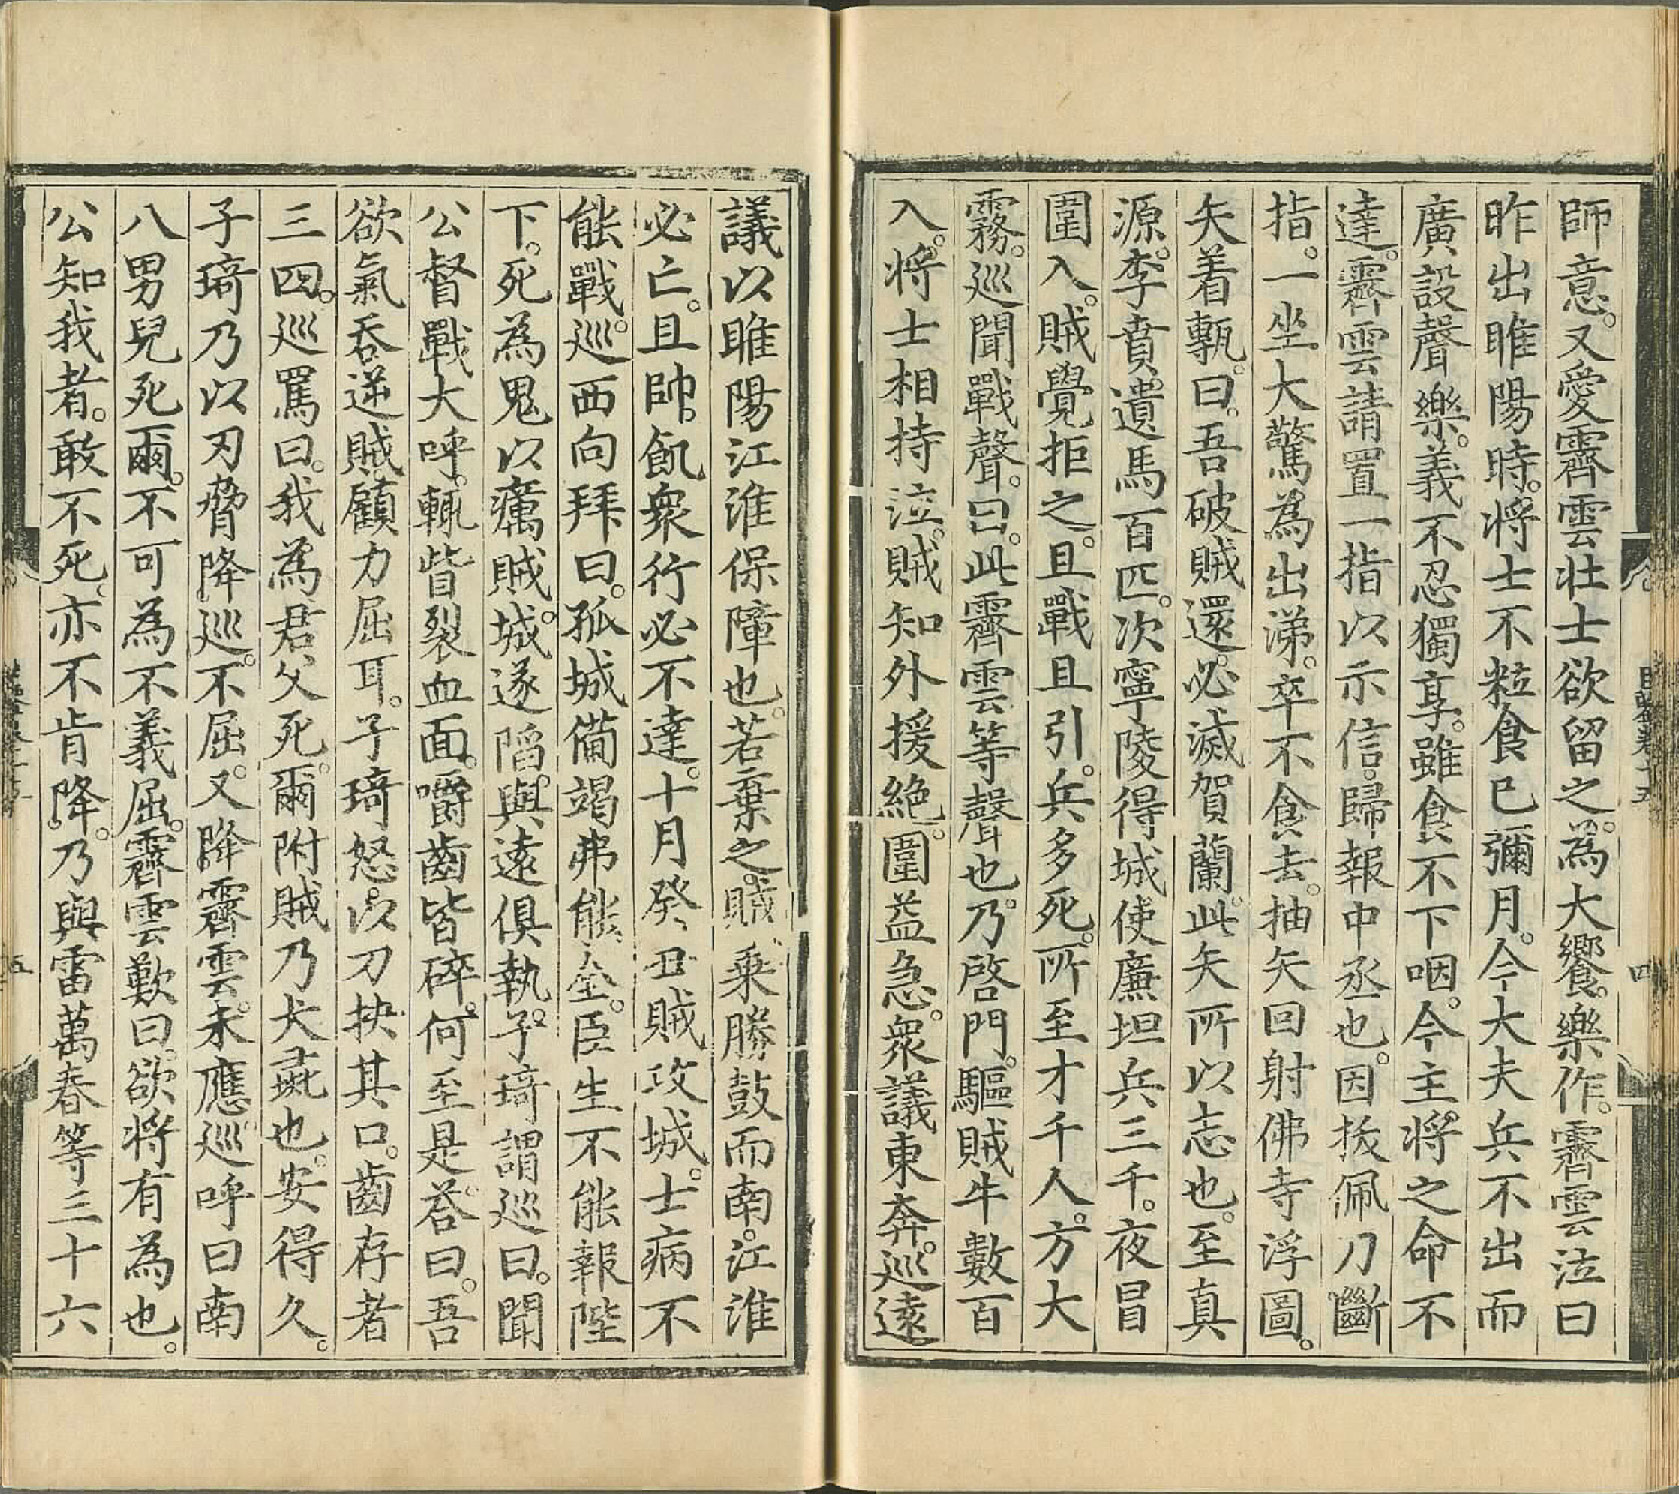 師意。又愛霽雲壯士欲留之。為大饗。樂作。霽雲泣曰
昨出睢陽時。將士不粒食已彌月。今大夫兵不出而
廣設聲樂。義不忍獨享。雖食不下咽。今主將之命不
達。霽雲請置一指以示信。歸報中丞也。因拔佩刀斷
指。一坐大驚為出涕。卒不食去。抽矢回射佛寺浮圖。
矢着甎。曰。吾破賊還。必滅賀蘭。此矢所以志也。至真
源。李賁遺馬百匹。次寧陵得城使廉坦兵三千。夜冒
圍入。賊覺拒之。且戰且引。兵多死。所至才千人。方大
霧。巡聞戰聲。曰。此霽雲等聲也。乃啓門。驅賊牛數百
入。將士相持泣。賊知外援絶。圍益急。衆議東奔。巡遠
議以睢陽江淮保障也。若棄之。賊乘勝鼓而南。江淮
必亡。且帥飢衆行必不達。十月癸丑賊攻城。士病不
能戰。巡西向拜曰。孤城備竭弗能全。臣生不能報陛
下。死為鬼以癘賊。城遂陷。與遠俱執。子琦謂巡曰。聞
公督戰大呼。輒眥裂血面。嚼齒皆碎。何至是。荅曰。吾
欲氣吞逆賊顧力屈耳。子琦怒。以刀抉其口。齒存者
三四。巡罵曰。我為君父死。爾附賊乃犬彘也。安得久。
子琦乃以刃脅降巡。不屈。又降霽雲。未應巡呼曰南
八男兒死爾。不可為不義屈。霽雲歎曰。欲將有為也。
公知我者。敢不死。亦不肯降。乃與雷萬春等三十六
四
五